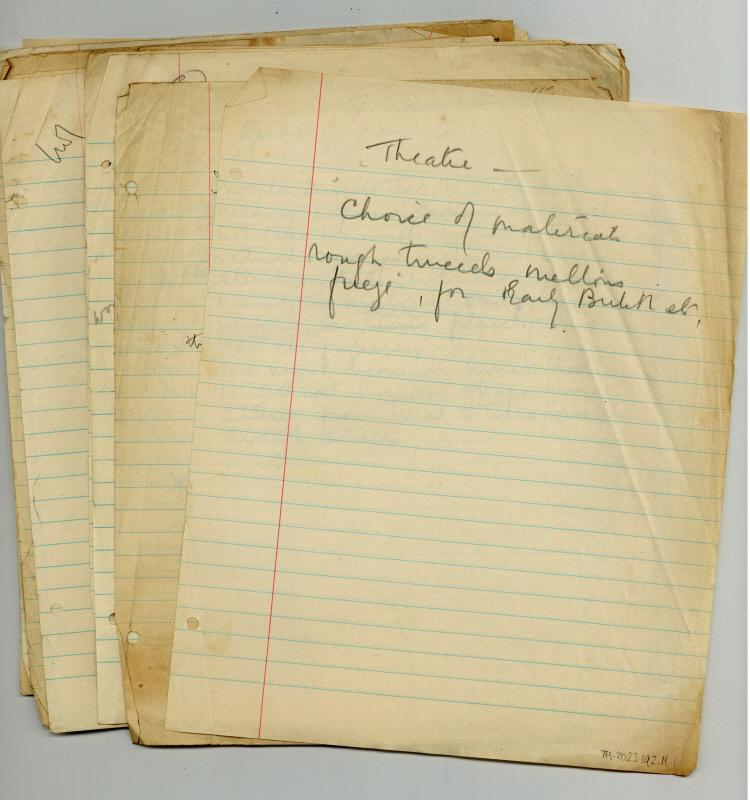 Theatre —
Choice of materials
rough tweeds meltons
frieze, for Early British etc.
TH-2023-192-M-1